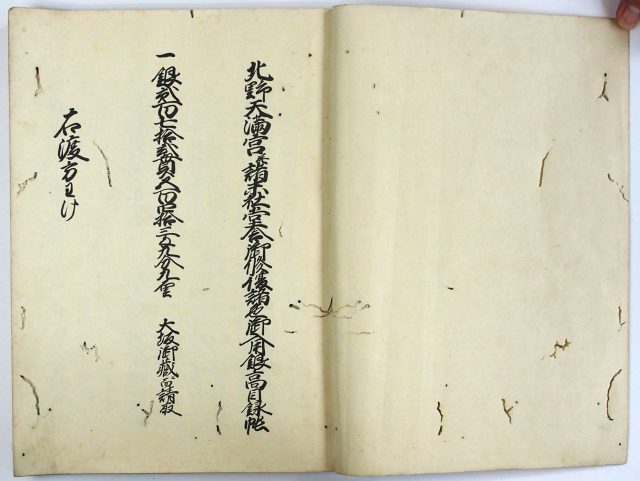 北野天満宮并諸末社堂舎御修覆諸色御入用銀高目録帳
一銀弐百七拾弐貫八百四拾三匁九分九重
大坂御蔵ゟ請取
右渡方わけ